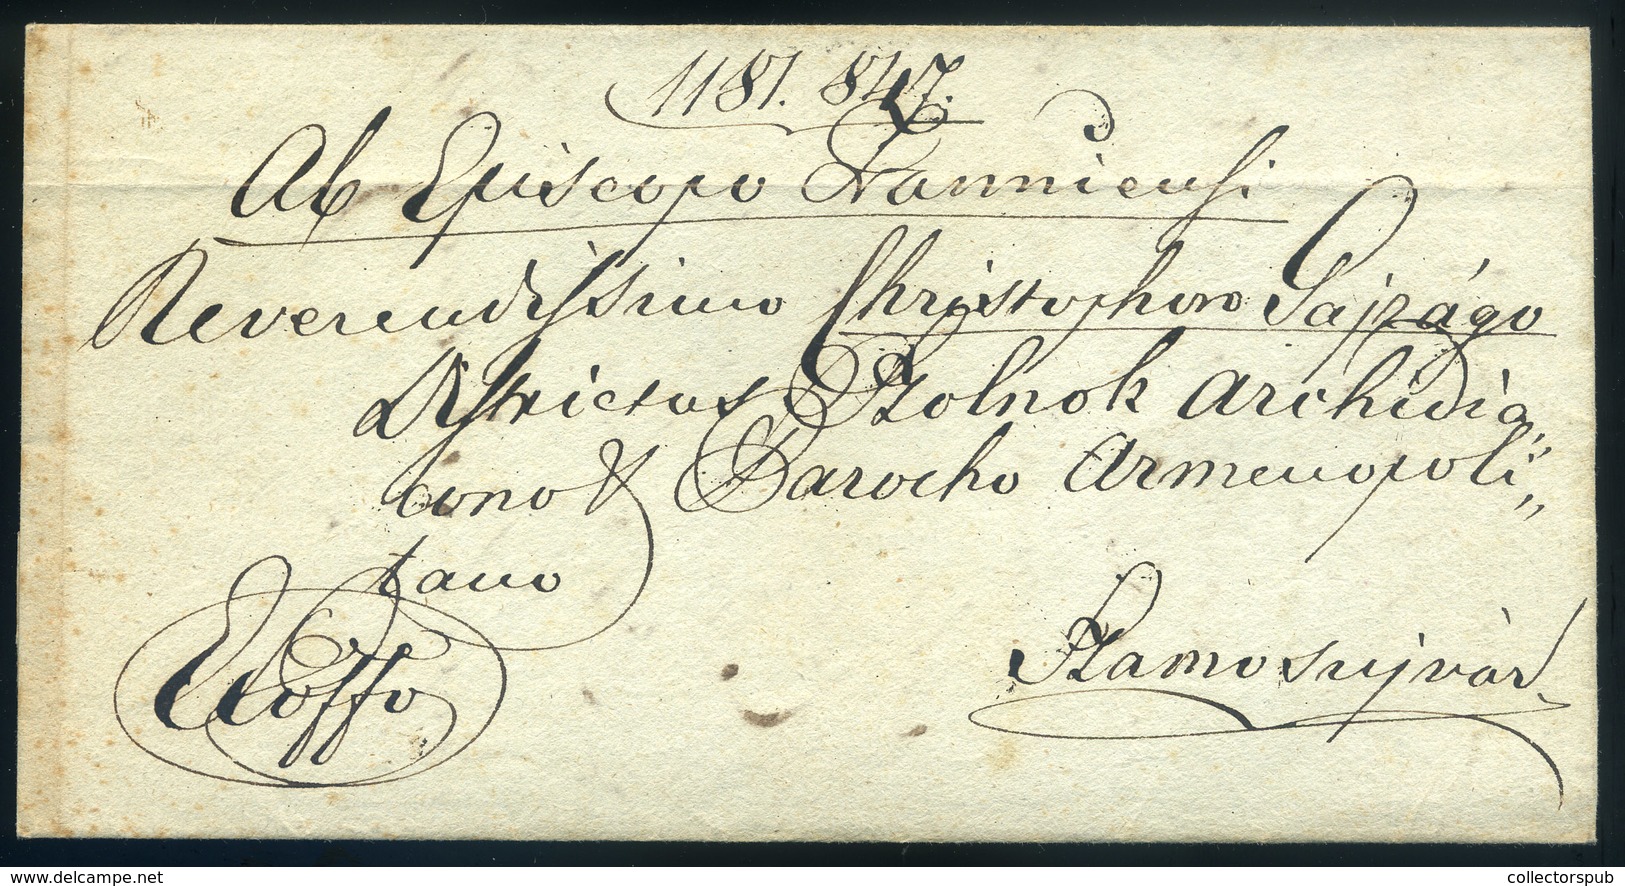 1181. 847.
Ab Episcopo Tranniensi
Reverendissimo Christophoro Gajzágo
Districtus Szolnok Archidia„
cono & Parocho Armenopoli„
tano
Exoffo
Szamosujvár
www.delcampe.net
collectorspub